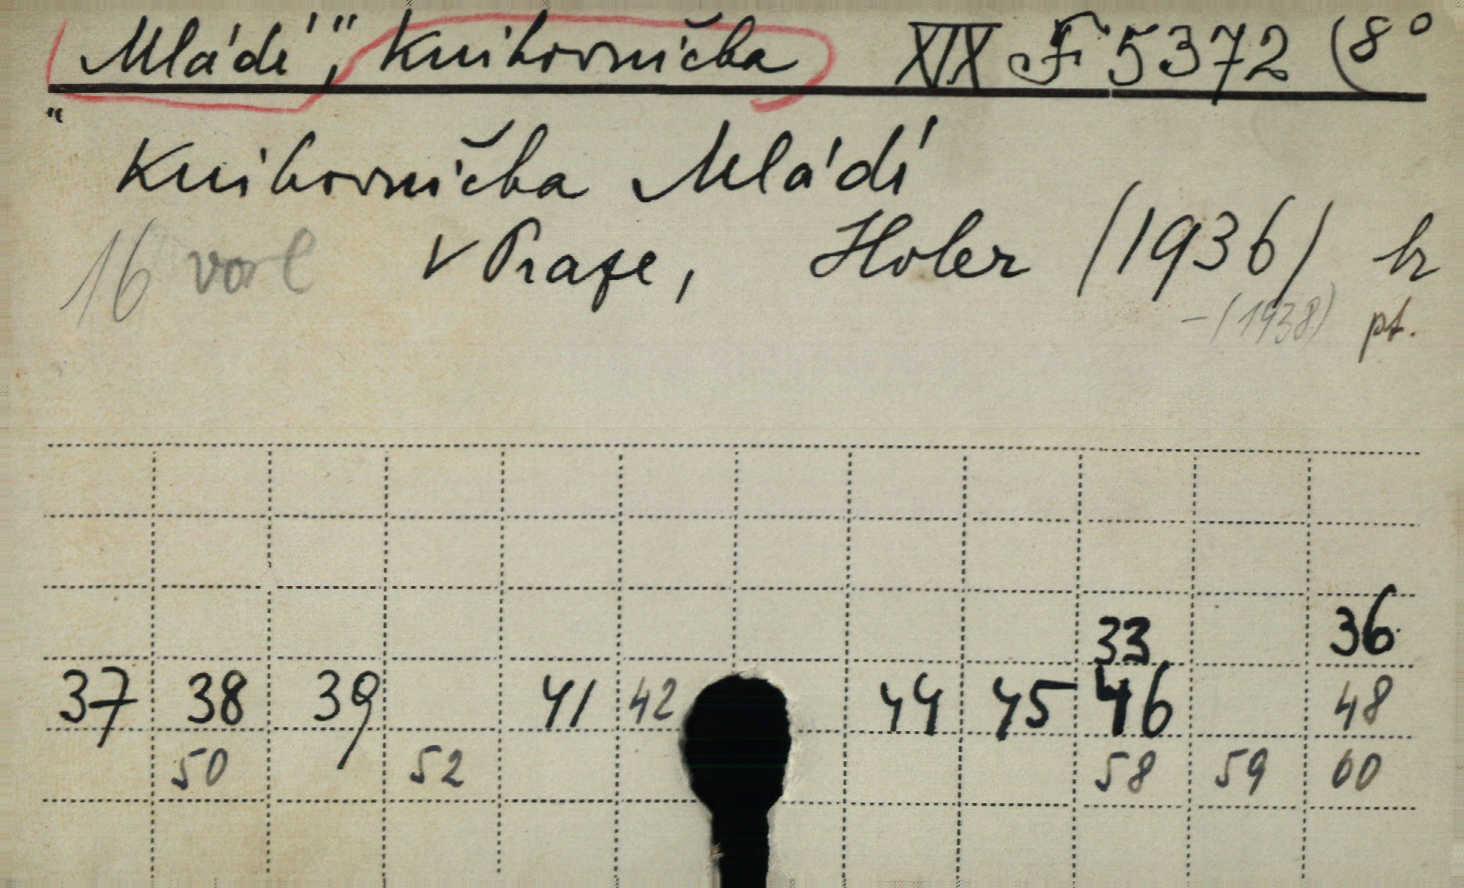 Mládí", Knihovnička XIX F 5372 (8°
"
Knihovnička Mládí
16 V Praze, Holer (1936) br
-(1938) pt.
33 36
37 38 39 41 42 44 45 46 48
50 52 58 59 60